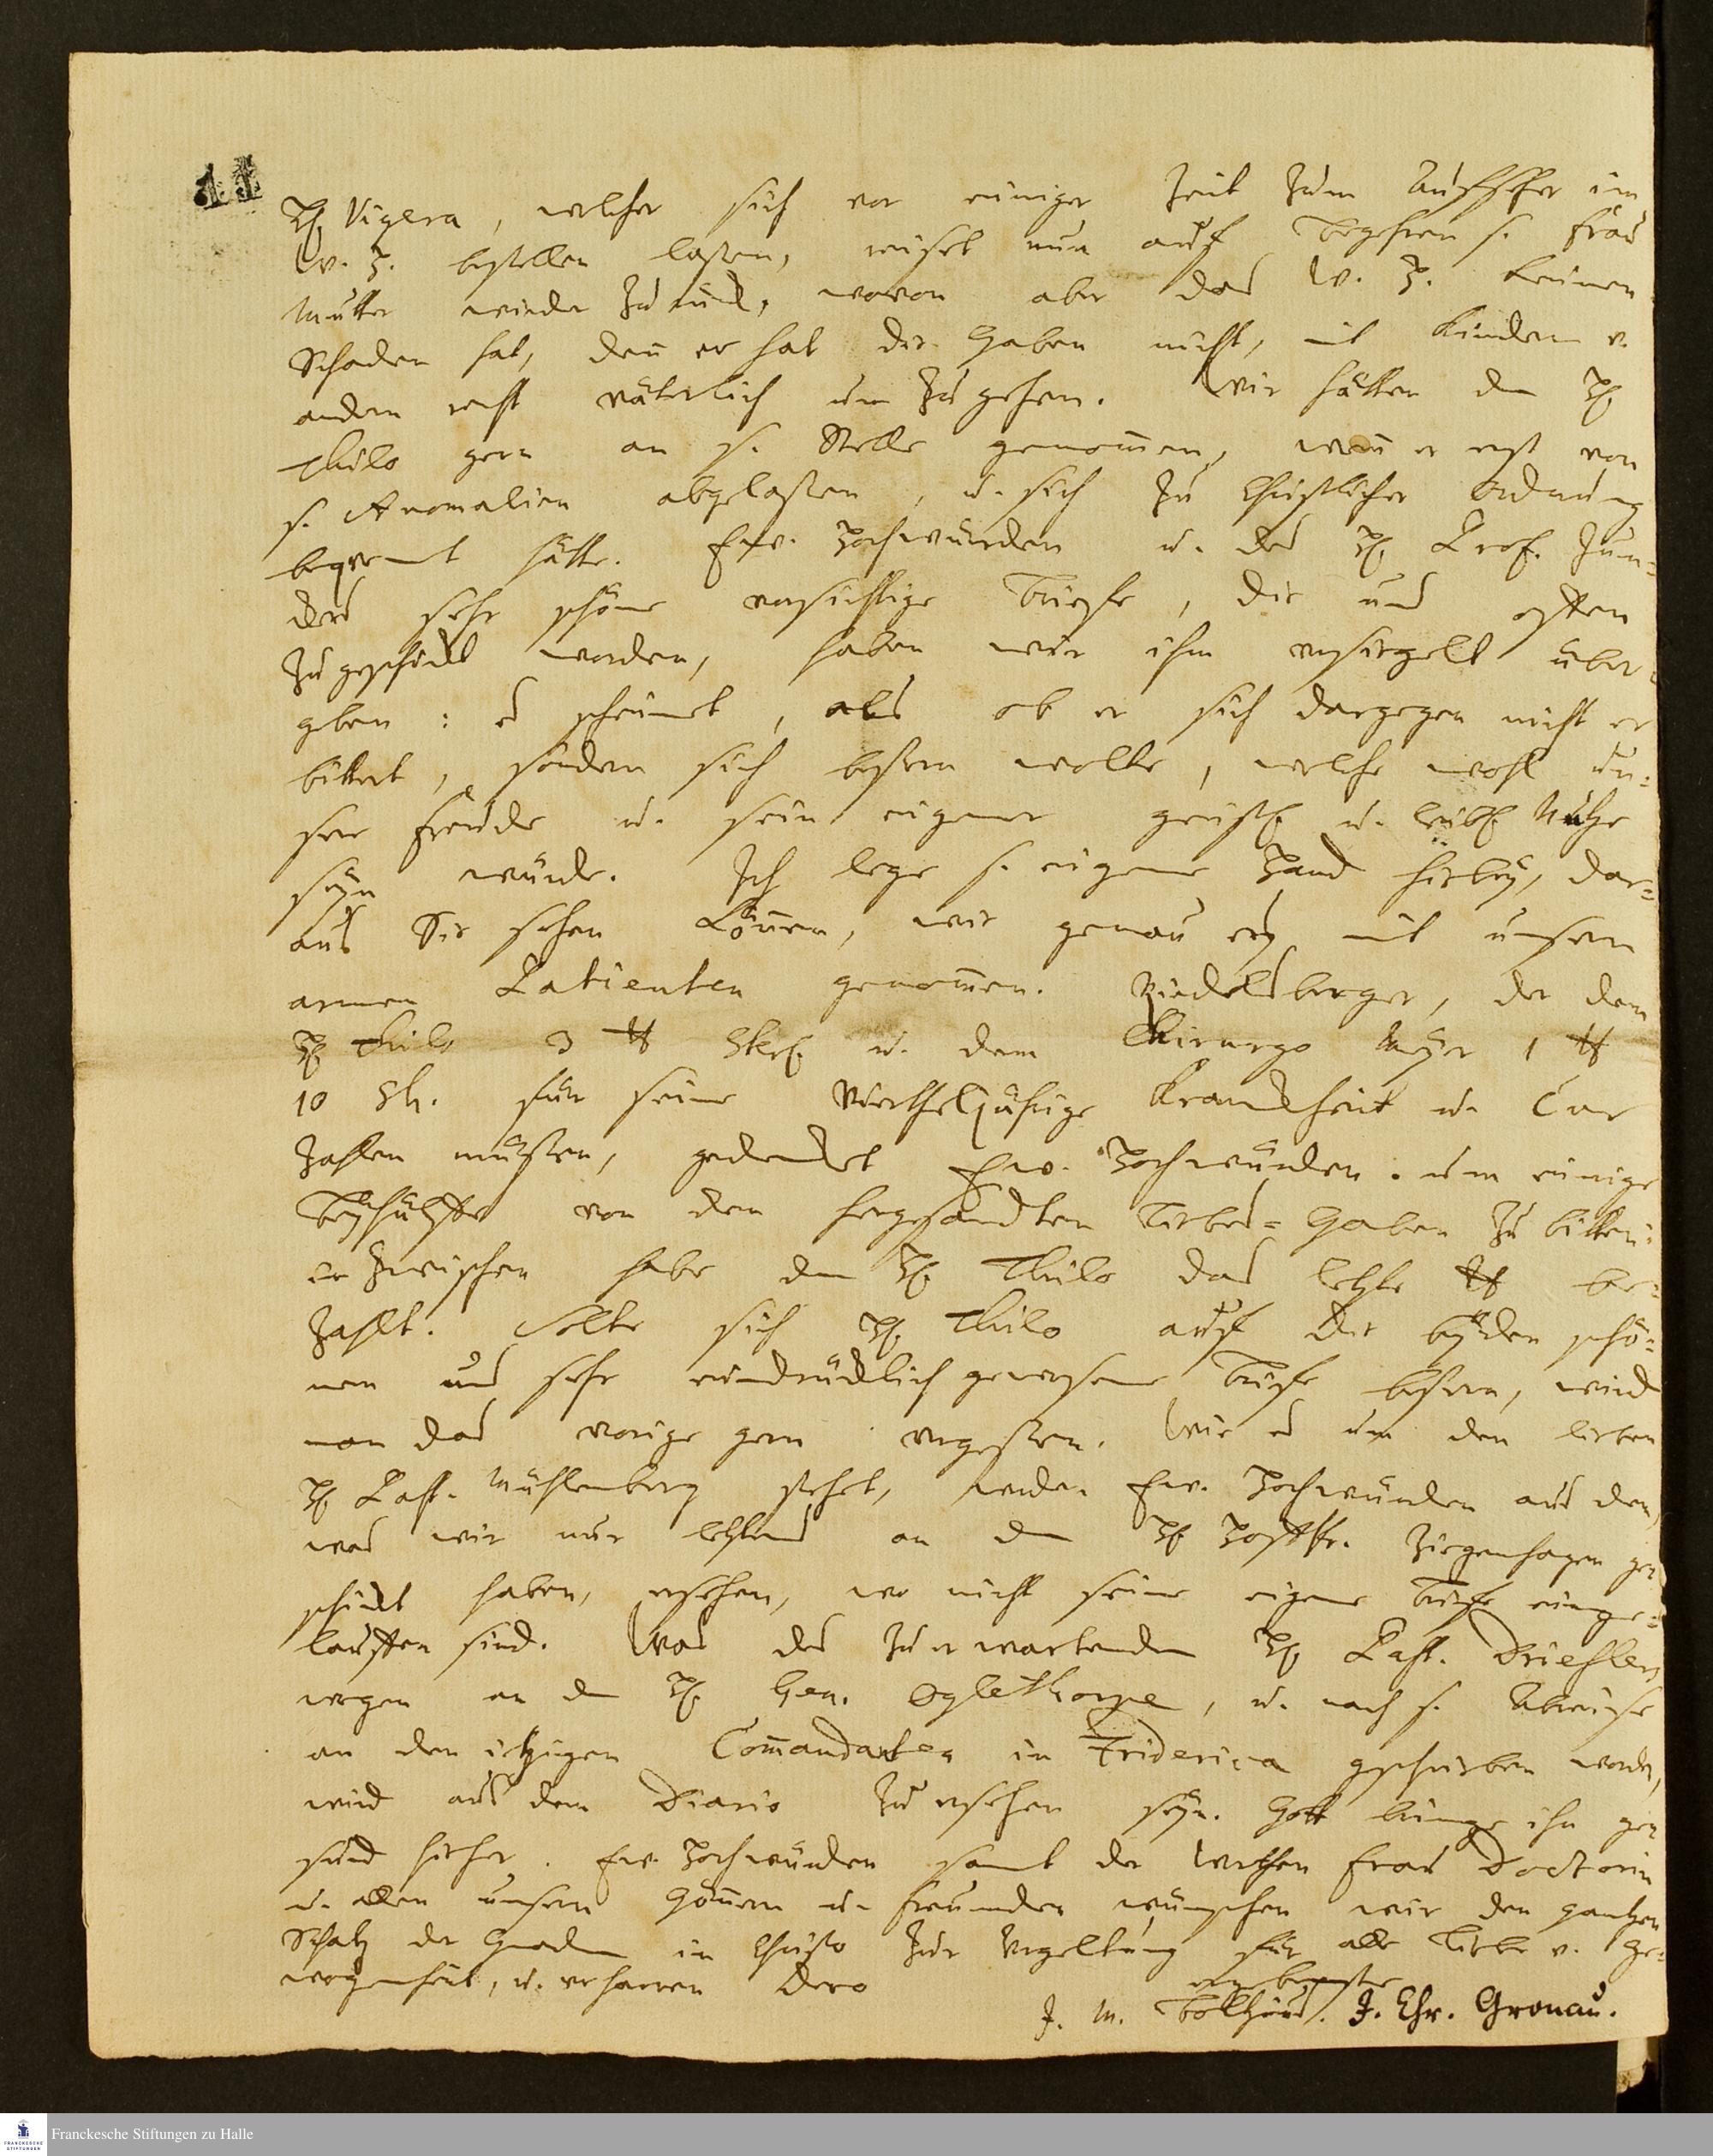 11
H. Vigera, welcher sich vor einiger Zeit zum Aufseher im
W. H. bestellen laßen, reiset nun auf Begehren s. Frau
Mutter wieder zurück, wovon aber das W. H. keinen
Schaden hat, den er hat die Gaben nicht, mit Kindern u.
andern recht väterlich um zu gehen. Wir hätten den H.
Thilo gern an s. Stelle genomen, wen er erst von
s. Anomalien abgelaßen, u. sich zu Christlicher Ordnung
beqvemt hätte. Ew. Hochwürden u. des H. Prof. Jun=
ckers sehr schöne vorsichtige Briefe, die uns offen
zugeschickt worden, haben wir ihm versiegelt über=
geben: es scheinet, als ob er sich dargegen nicht er
bittert, sondern sich beßern wolte, welche wohl un=
sere Freude u. sein eigener geistl. u. leibl. Nutze
seyn würde. Ich lege s. eigene Hand hierbey, dar=
aus Sie sehen können, wie genau ers mit unsern
armen Patienten genomen. Riedelsberger, der dem
H. Thilo 3 ℔ Sterl. u. dem Chirurgo Mayer 1 ℔
10 Sh. für seine viertheljährige Kranckheit u. Cur
zahlen müßen, gedencket Ew. Hochwürden um einige
Beyhülffe von den hergesandten Liebes=Gaben zu bitten:
er zwischen habe dem H. Thilo das letzte ℔ be=
zahlt. Solte sich H. Thilo auf die beyden schö=
nen und sehr eindrücklich gewesene Briefe beßern, wird
man das vorige gern vergeßen. Wie es um den lieben
H. Past. Mühlenberg stehet, werden Ew. Hochwürden aus dem,
was wir nur letztens an den H. Hoffpr. Ziegenhagen ge=
schickt haben, ersehen, wo nicht seine eigene Briefe einge=
lauffen sind. Was des zu erwartenden H. Past. Driesslers
wegen an den H. Gen. Oglethorpe, u. nach s. Abreise
an den ietzigen Commandanten in Friderica geschrieben worden,
wird aus dem Diario zu ersehen seyn. Gott bringe ihn ge=
sund hieher. Ew. Hochwürden samt der werthen Frau Doctorin
u. allen unsern Gönnern u. Freunden wünschen wir den gantzen
Schatz der Gnaden in Christo zur Vergeltung für alle Liebe u. Ge=
wogenheit, u. verharren Dero
ergebenste
J. M. Boltzius. J. Chr. Gronau.
Franckesche Stiftungen zu Halle